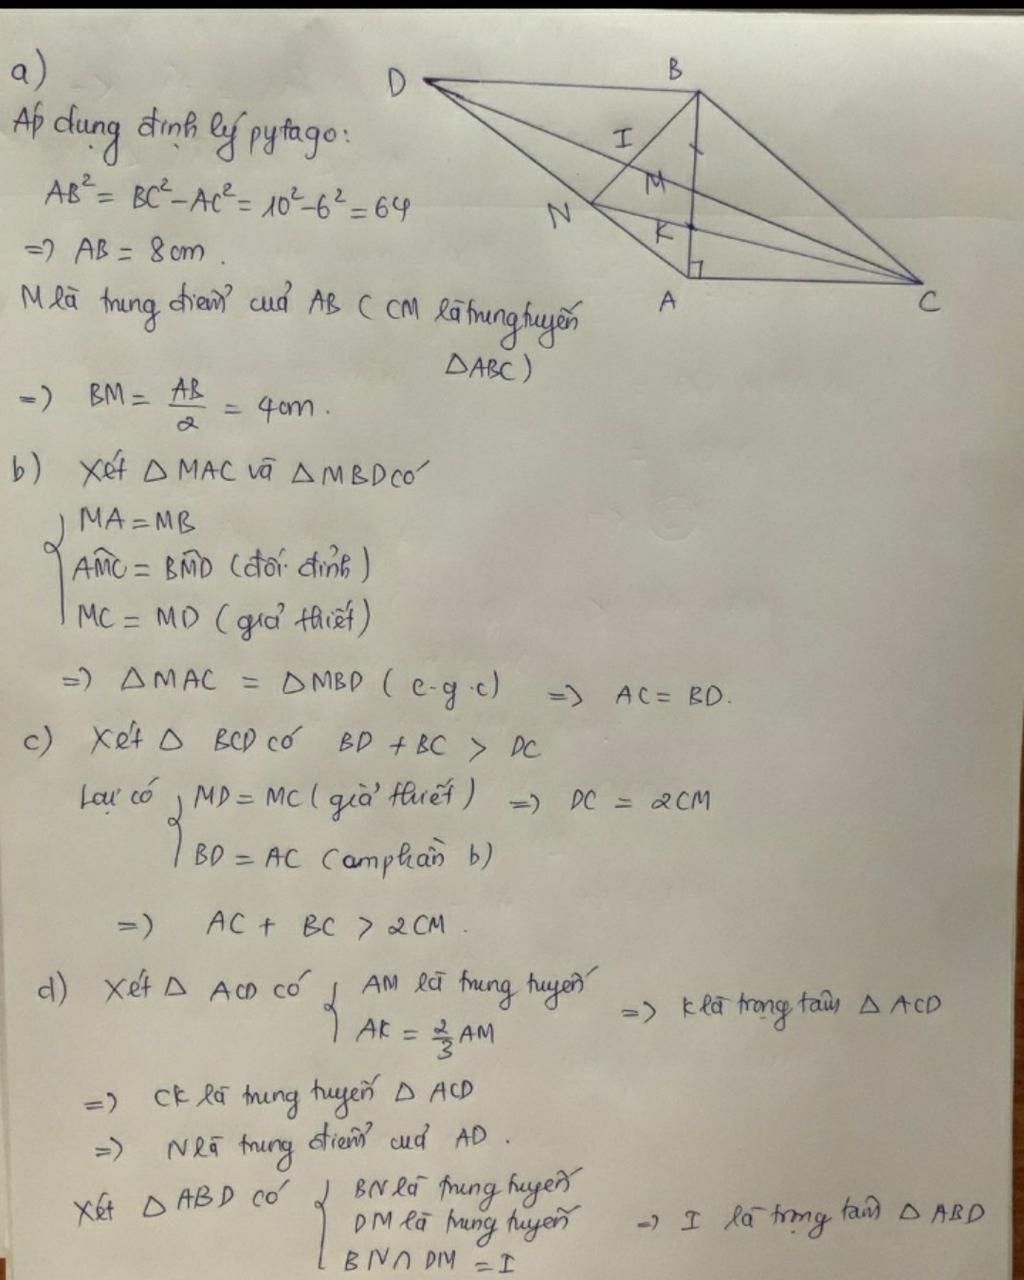 a)
Áp dụng định lý pytago:
AB² = BC² - AC² = 10² - 6² = 64
=> AB = 8cm.
M là trung điểm của AB ( CM là trung tuyến
△ABC)
=> BM = AB/2 = 4cm.
D
B
I
M
N
K
A
C
b) Xét △ MAC và △ MBD có
MA = MB
AMC = BMD (đối đỉnh)
MC = MD (giả thiết)
=> △ MAC = △ MBD ( c-g.c) => AC = BD.
c) Xét △ BCD có BD + BC > DC
Lại có MD = MC (giả thiết) => DC = 2CM
BD = AC (cmphần b)
=> AC + BC > 2CM.
d) Xét △ ACD có AM là trung tuyến
AK = 2/3 AM => K là trọng tâm △ ACD
=> CK là trung tuyến △ ACD
=> N là trung điểm của AD.
Xét △ ABD có BN là trung tuyến
DM là trung tuyến => I là trọng tâm △ ABD
BN ∩ DM = I